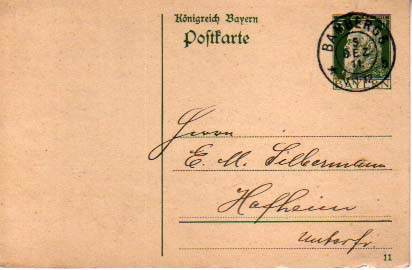 Königreich Bayern
Postkarte
BAMBERG
5
DEZ
11
BAYERN
Herrn
E. M. Silbermann
Hofheim
Unterfr.
11